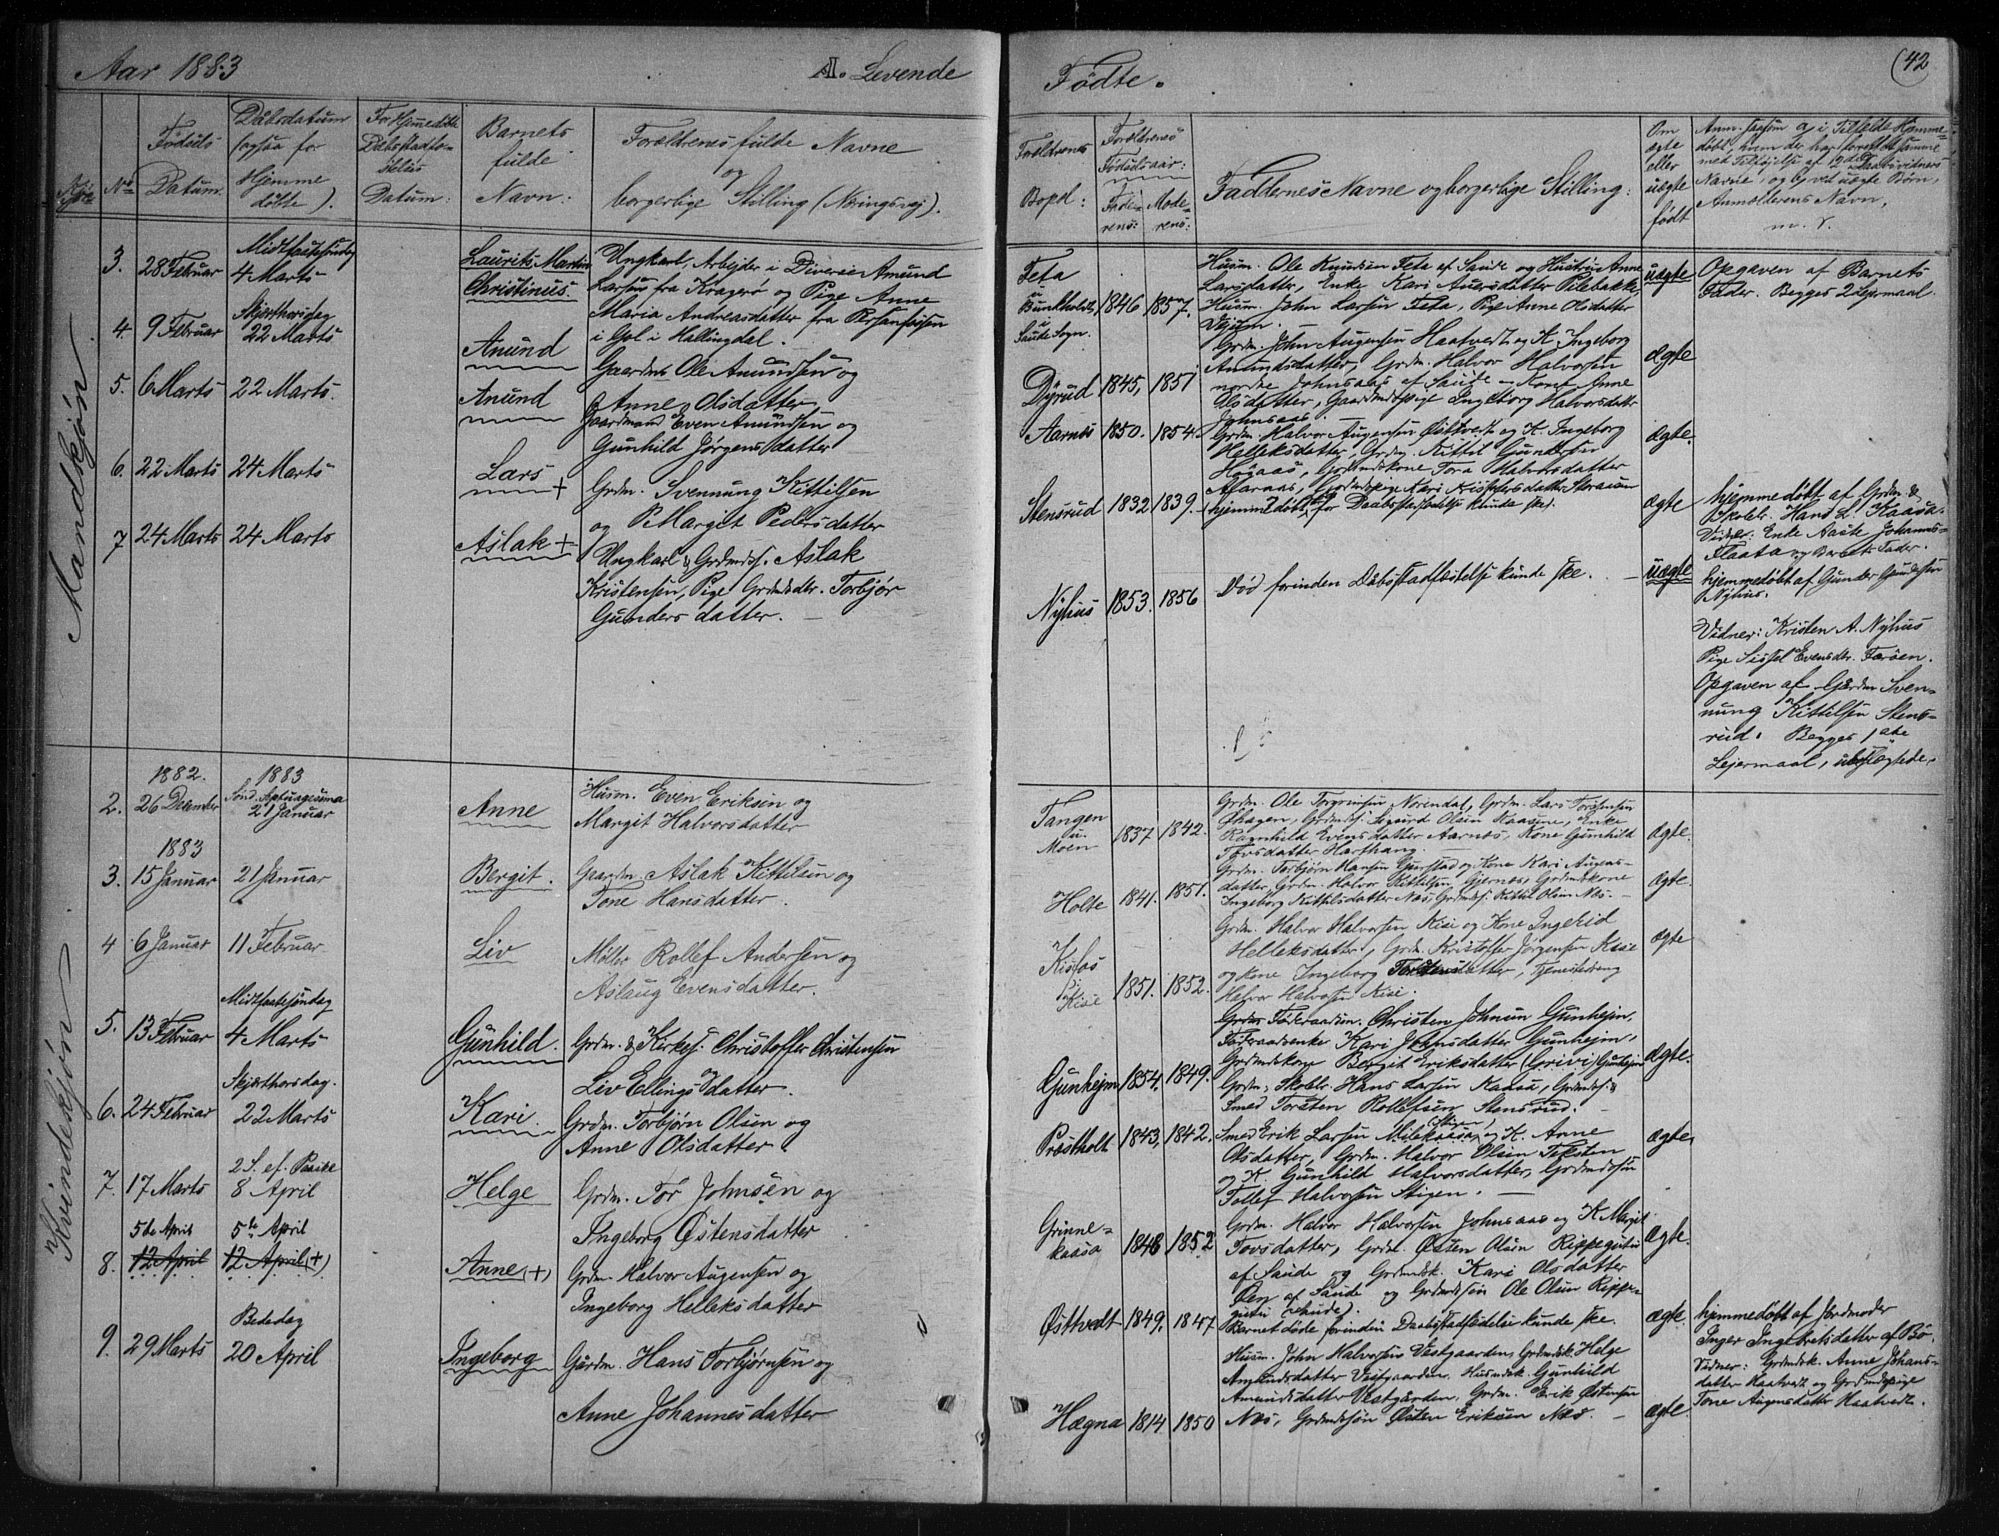 Aar 1883
A. Levende
Fødte.
(42
Kjøn
No
Fødsels
Datum.
Daabsdatum
(ogsaa for
Hjemme
døbte).
For Hjemmedøbte
Datum:
Barnets
fulde
Navn:
Forældrenes fulde Navne
og
borgerlige Stilling (Næringsvej).
Forældrenes
Bopæl:
Forældrenes
Fødselsaar:
Fade-
rens:
Mode-
rens:
Faddernes Navne og borgerlige Stilling:
Om
ægte
eller
uægte
født
Anmælderens Navn,
m. v.
Mandkjøn
3.
28 Februar
Midtfastesøndag
4 Marts
Laurits Martin
Christinus.
Ungkarl, Arbejder i Diverse Amund
Larsen fra Kragerø og Pige Anne
Maria Andreasdatter fra
i Gol i Hallingdal.
Feta
i
Saude Sogn.
1846
1857.
Husm. Ole Knudsen Feta af Saude og Hustru Anne
Larsdatter, Enke Kari
Husm. John Larsen Feta, Pige Anne Olsdatter
uægte
Opgaven af Barnets
Fader. Begges 2 Lejermaal.
4.
9 Februar
Skjærthorsdag
22 Marts
Anund
Gaardm. Ole Amundsen og
Anne Olsdatter
Dyrud
1845,
1851
Grdm. John Augensen Haatvedt og K. Ingeborg
Amundsdatter, Grdm. Halvor Halvorsen
nordre Johnsaas af Saude – Kone Anne
Olsdatter, Gaardmdspige Ingeborg Halvorsdatter
Johnsaas.
ægte
5.
6 Marts
22 Marts.
Anund
Gaardmand Even Amundsen og
Gunhild Jørgensdatter
Aarnes
1850.
1854.
Grdm. Halvor Augensen Østtvedt og K. Ingeborg
Helleksdatter, Grdm. Kittel Gundersen
Høgaas, Gardmdskone Tora Halvorsdatter
ægte.
6.
22 Marts
24 Marts
Lars
+
Grdm. Svennung Kittilsen
og Margit Pedersdatter
Stensrud
1832
1839.
(hjemmedøbt, før Daabsstadfæstelse kunde ske).
ægte
hjemmedøbt af Grdm. &
Skolelr. Hans L. Kaasa.
Vidner: Enke Aaste Johannes-
Flaata og Barnets Fader.
7
24 Marts
24 Marts
Aslak +
Ungkarl & Grdmdss. Aslak
Kristensen, Pige Grdmdsdtr. Torbjør
Gundersdatter.
Nyhus
1853.
1856
Død forinden Daabsstadfæstelse kunde ske.
uægte
hjemmedøbt af Gunder Gundersen
Nyhus.
Vidner: Kristen A. Nyhus
Pige Sissel Evensdtr. Færøen.
Opgaven af Gardm Sven-
nung Kittilsen Stens-
rud. Begges 1ste
Lejermaal, ubeslægtede.
Kvindekjøn
1882.
1883
2.
26 December
21 Januar
Anne
Husm. Even Eriksen og
Margit Halvorsdatter
Tangen
u.
Moen
1837
1842.
Grdm. Ole Torgrimsen Norendal, Grdm. Lars Torstensen
Øhagen, Grdmdss. Sigurd Olsen Kaasene, Enke
Ragnhild Evensdatter Aarnes, Kone Gunhild
Tovsdatter Harthang.
ægte.
1883
3.
15 Januar
21 Januar
Bergit.
Gaardm. Aslak Kittilsen og
Tone Hansdatter.
Holte
1841.
1851.
Grdm. Torbjørn Hansen Gjerstad og Kone Kari Augens-
datter, Grdm. Halvor Kittilsen Gjernes, Grdmdskone
Ingeborg Kittilsdatter Næs, Grdmdss. Kittil Olsen Næs.
Ægte.
4
6 Januar
11 Februar
Liv
Møller Rollef Andersen og
Aslaug Evensdatter.
Kisfos
p.
Kise
1851.
1852.
Grdm. Halvor Halvorsen Kise og Kone Ingerid
Helleksdatter, Grdm. Kristoffer Jørgensen Kise
og Kone Ingeborg Torstensdatter, Tjenestedreng
Halvor Halvorsen Kise.
ægte
5.
13 Februar
Midtfastesøndag
4 Marts
Gunhild.
Grdm. & Kirkes. Christoffer Christensen
Liv Ellingsdatter.
Gunhejm
1854.
1849.
Grdm. Føderaadsm. Christen Johnsen Gunhejm,
Føderaadsenke Kari Johnsdatter Gunhejm,
Grdmdskone Bergit Eriksdatter (Grivi) Gunhejm
Grdm. Skolelr. Hans Larsen Kaasa, Grdmds. &
Smed Torsten Rollefsen Stensrud.
Ægte.
6.
24 Februar
Skjærthorsdag.
22 Marts
Kari.
Grdm. Torbjørn Olsen og
Anne Olsdatter.
Præstholt
1843,
1842.
Smed Erik Larsen Milekaasa (Stigen), og K. Anne
Olsdatter, Grdm. Halvor Olsen Teksten
og K. Gunhild Halvorsdatter, Grdmdssøn
Tollef Halvorsen Stigen.
ægte,
7.
17 Marts
2 S. ef. Paaske
8 April
Helge
Grdm. Tor Johnsen og
Ingeborg Østensdatter
Grinne-
kaasa
1848
1852
Grdm. Halvor Halvorsen Johnsaas og K. Margit
Tovsdatter, Grdm. Østen Olsen Rippegutu
af Saude og Grdmdsk. Kari Olsdatter
Øen af Saude og Grdmdssøn Ole Olsen Rippe-
gutu (Saude).
Ægte.
8.
5te April
12 April
5te April
12 April (+)
Anne (+)
Grdm. Halvor Augensen og
Ingeborg Helleksdatter
Østtvedt
1849.
1847
Barnet døde forinden Daabsstadfæstelsen kunde ske.
ægte.
hjemmedøbt af Jordmoder
Inger Ingebretsdatter af Bø.
Vidner: Grdmdsk. Anne Johans-
datter Haatvedt og Grdmdspige
Tone Augensdatter Haatvedt.
9.
29 Marts
Bededag
20 April
Ingeborg
Gårdm. Hans Torbjørnsen og
Anne Johannesdatter
Hægna
1814.
1850
Husm. John Halvorsen Vestgaarden, Grdmdsk. Helge
Amundsdatter Vestgaarden, Husmdsk. Gunhild
Amundsdatter Vestgården, Grdm. Erik Østensen
Næs, Grdmdssøn Østen Eriksen Næs.
ægte.